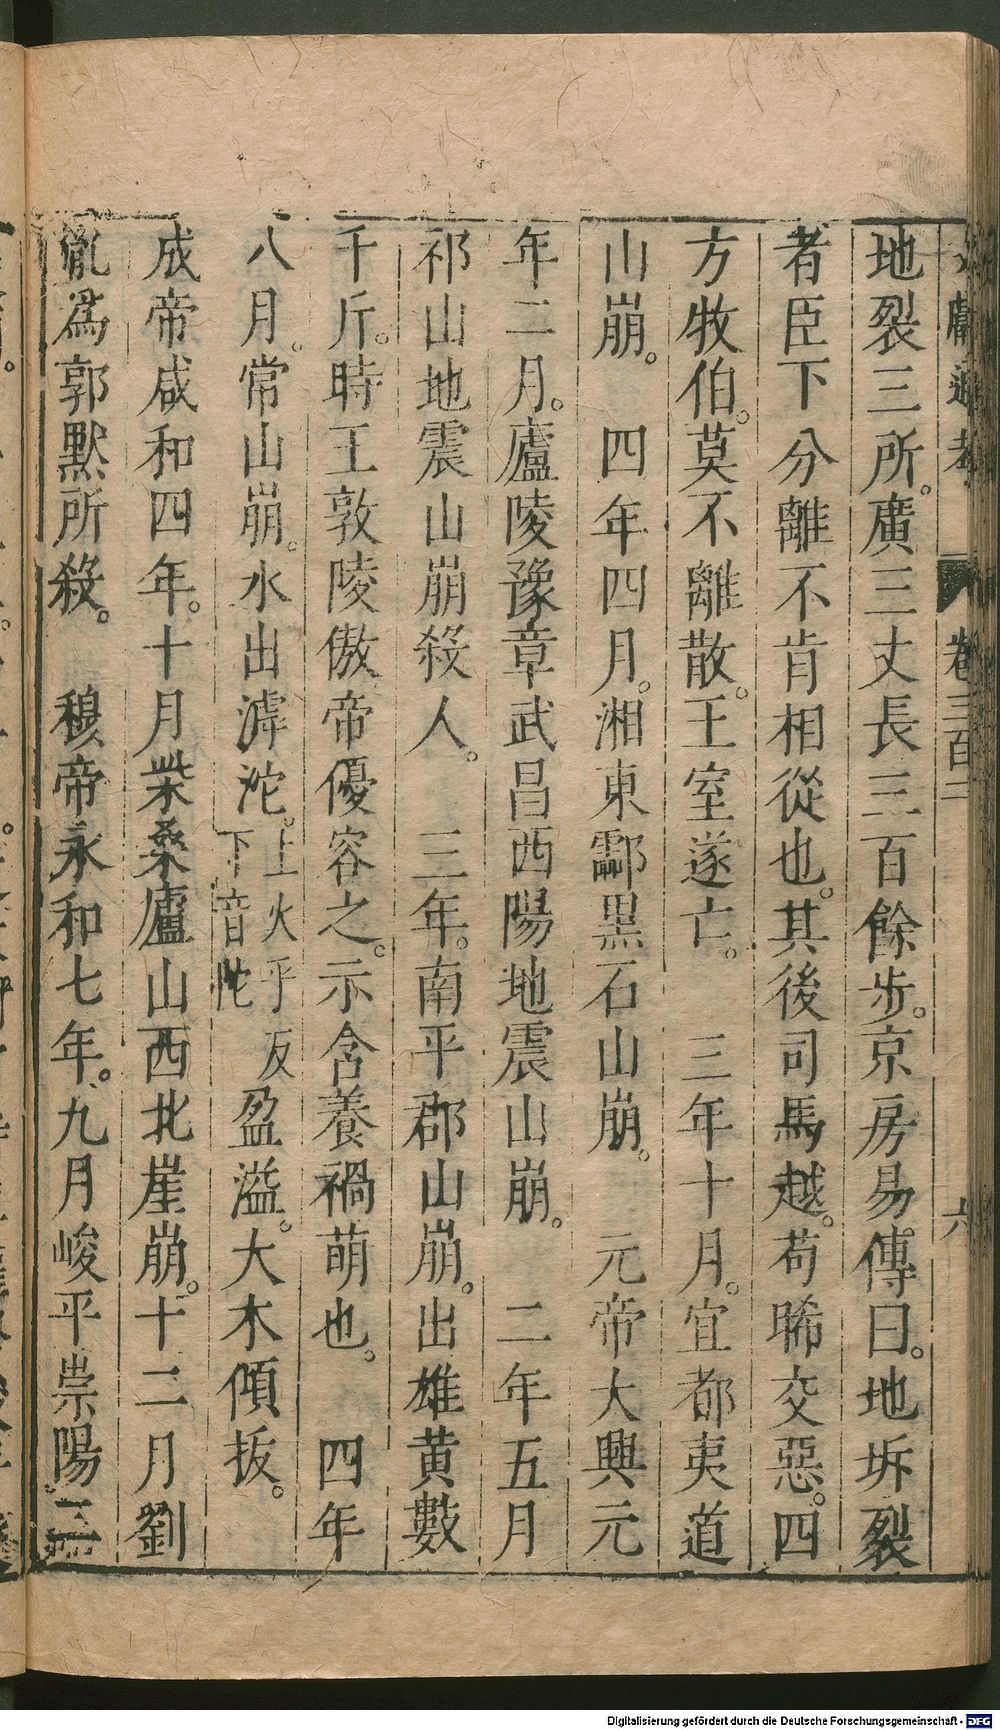 獻通考 卷三百二 六
地裂三所。廣三丈長三百餘步。京房易傳曰。地坼裂
者臣下分離不肯相從也。其後司馬越。苟晞交惡。四
方牧伯。莫不離散。王室遂亡。 三年十月。宜都夷道
山崩。 四年四月。湘東酃黑石山崩。 元帝大興元
年二月。廬陵豫章武昌西陽地震山崩。 二年五月
祁山地震山崩殺人。 三年。南平郡山崩。出雄黃數
千斤。時王敦陵傲帝優容之。示含養禍萌也。 四年
八月。常山崩。水出滹沱。上火乎反下音陀盈溢。大木傾拔。
成帝咸和四年。十月柴桑廬山西北崖崩。十二月劉
胤爲郭默所殺。 穆帝永和七年。九月峻平崇陽。二
Digitalisierung gefördert durch die Deutsche Forschungsgemeinschaft - DFG